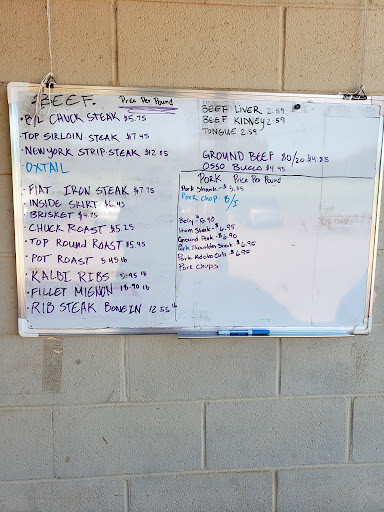 BEEF. Price Per Pound
B/L CHUCK STEAK $5.75
TOP SIRLOIN STEAK $7.45
NEW YORK STRIP STEAK $12.85
OXTAIL
FLAT IRON STEAK $7.75
INSIDE SKIRT $6.45
BRISKET $4.75
CHUCK ROAST $5.25
TOP ROUND ROAST $5.45
POT ROAST 5.45 lb
KALBI RIBS 5.95 lb
FILLET MIGNON 18.90 lb
RIB STEAK BONE IN 12.55 lb
BEEF LIVER 2.59
BEEF KIDNEY 2.59
TONGUE 2.59
GROUND BEEF 80/20 $4.85
OSSO BUCCO $4.45
PORK Price Per Pound
Pork Shank - $5.05
PORK CHOP B/I
Belly $6.90
Ham Steak - $6.95
Ground Pork - $6.90
Pork Shoulder Steak $6.95
Pork Adobo Cuts - $6.95
Pork Chops